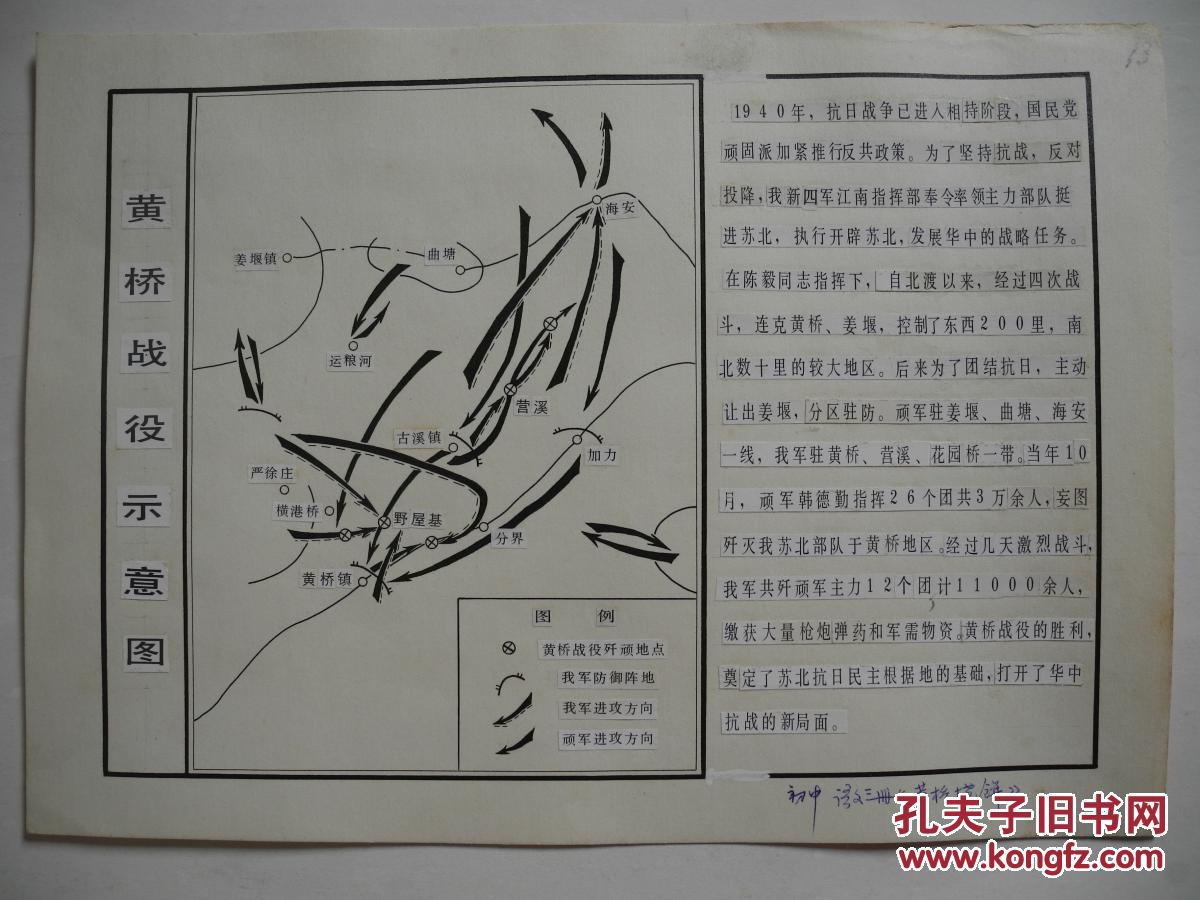 13
黄桥战役示意图
海安
姜堰镇
曲塘
运粮河
营溪
古溪镇
加力
严徐庄
横港桥
野屋基
分界
黄桥镇
图 例
黄桥战役歼顽地点
我军防御阵地
我军进攻方向
顽军进攻方向
1940年，抗日战争已进入相持阶段，国民党
顽固派加紧推行反共政策。为了坚持抗战，反对
投降，我新四军江南指挥部奉令率领主力部队挺
进苏北，执行开辟苏北，发展华中的战略任务。
在陈毅同志指挥下，自北渡以来，经过四次战
斗，连克黄桥、姜堰，控制了东西200里，南
北数十里的较大地区。后来为了团结抗日，主动
让出姜堰，分区驻防。顽军驻姜堰、曲塘、海安
一线，我军驻黄桥、营溪、花园桥一带。当年10
月，顽军韩德勤指挥26个团共3万余人，妄图
歼灭我苏北部队于黄桥地区。经过几天激烈战斗，
我军共歼顽军主力12个团计11000余人，
缴获大量枪炮弹药和军需物资。黄桥战役的胜利，
奠定了苏北抗日民主根据地的基础，打开了华中
抗战的新局面。
初中 语文三册《黄桥烧饼》
孔夫子旧书网
www.kongfz.com